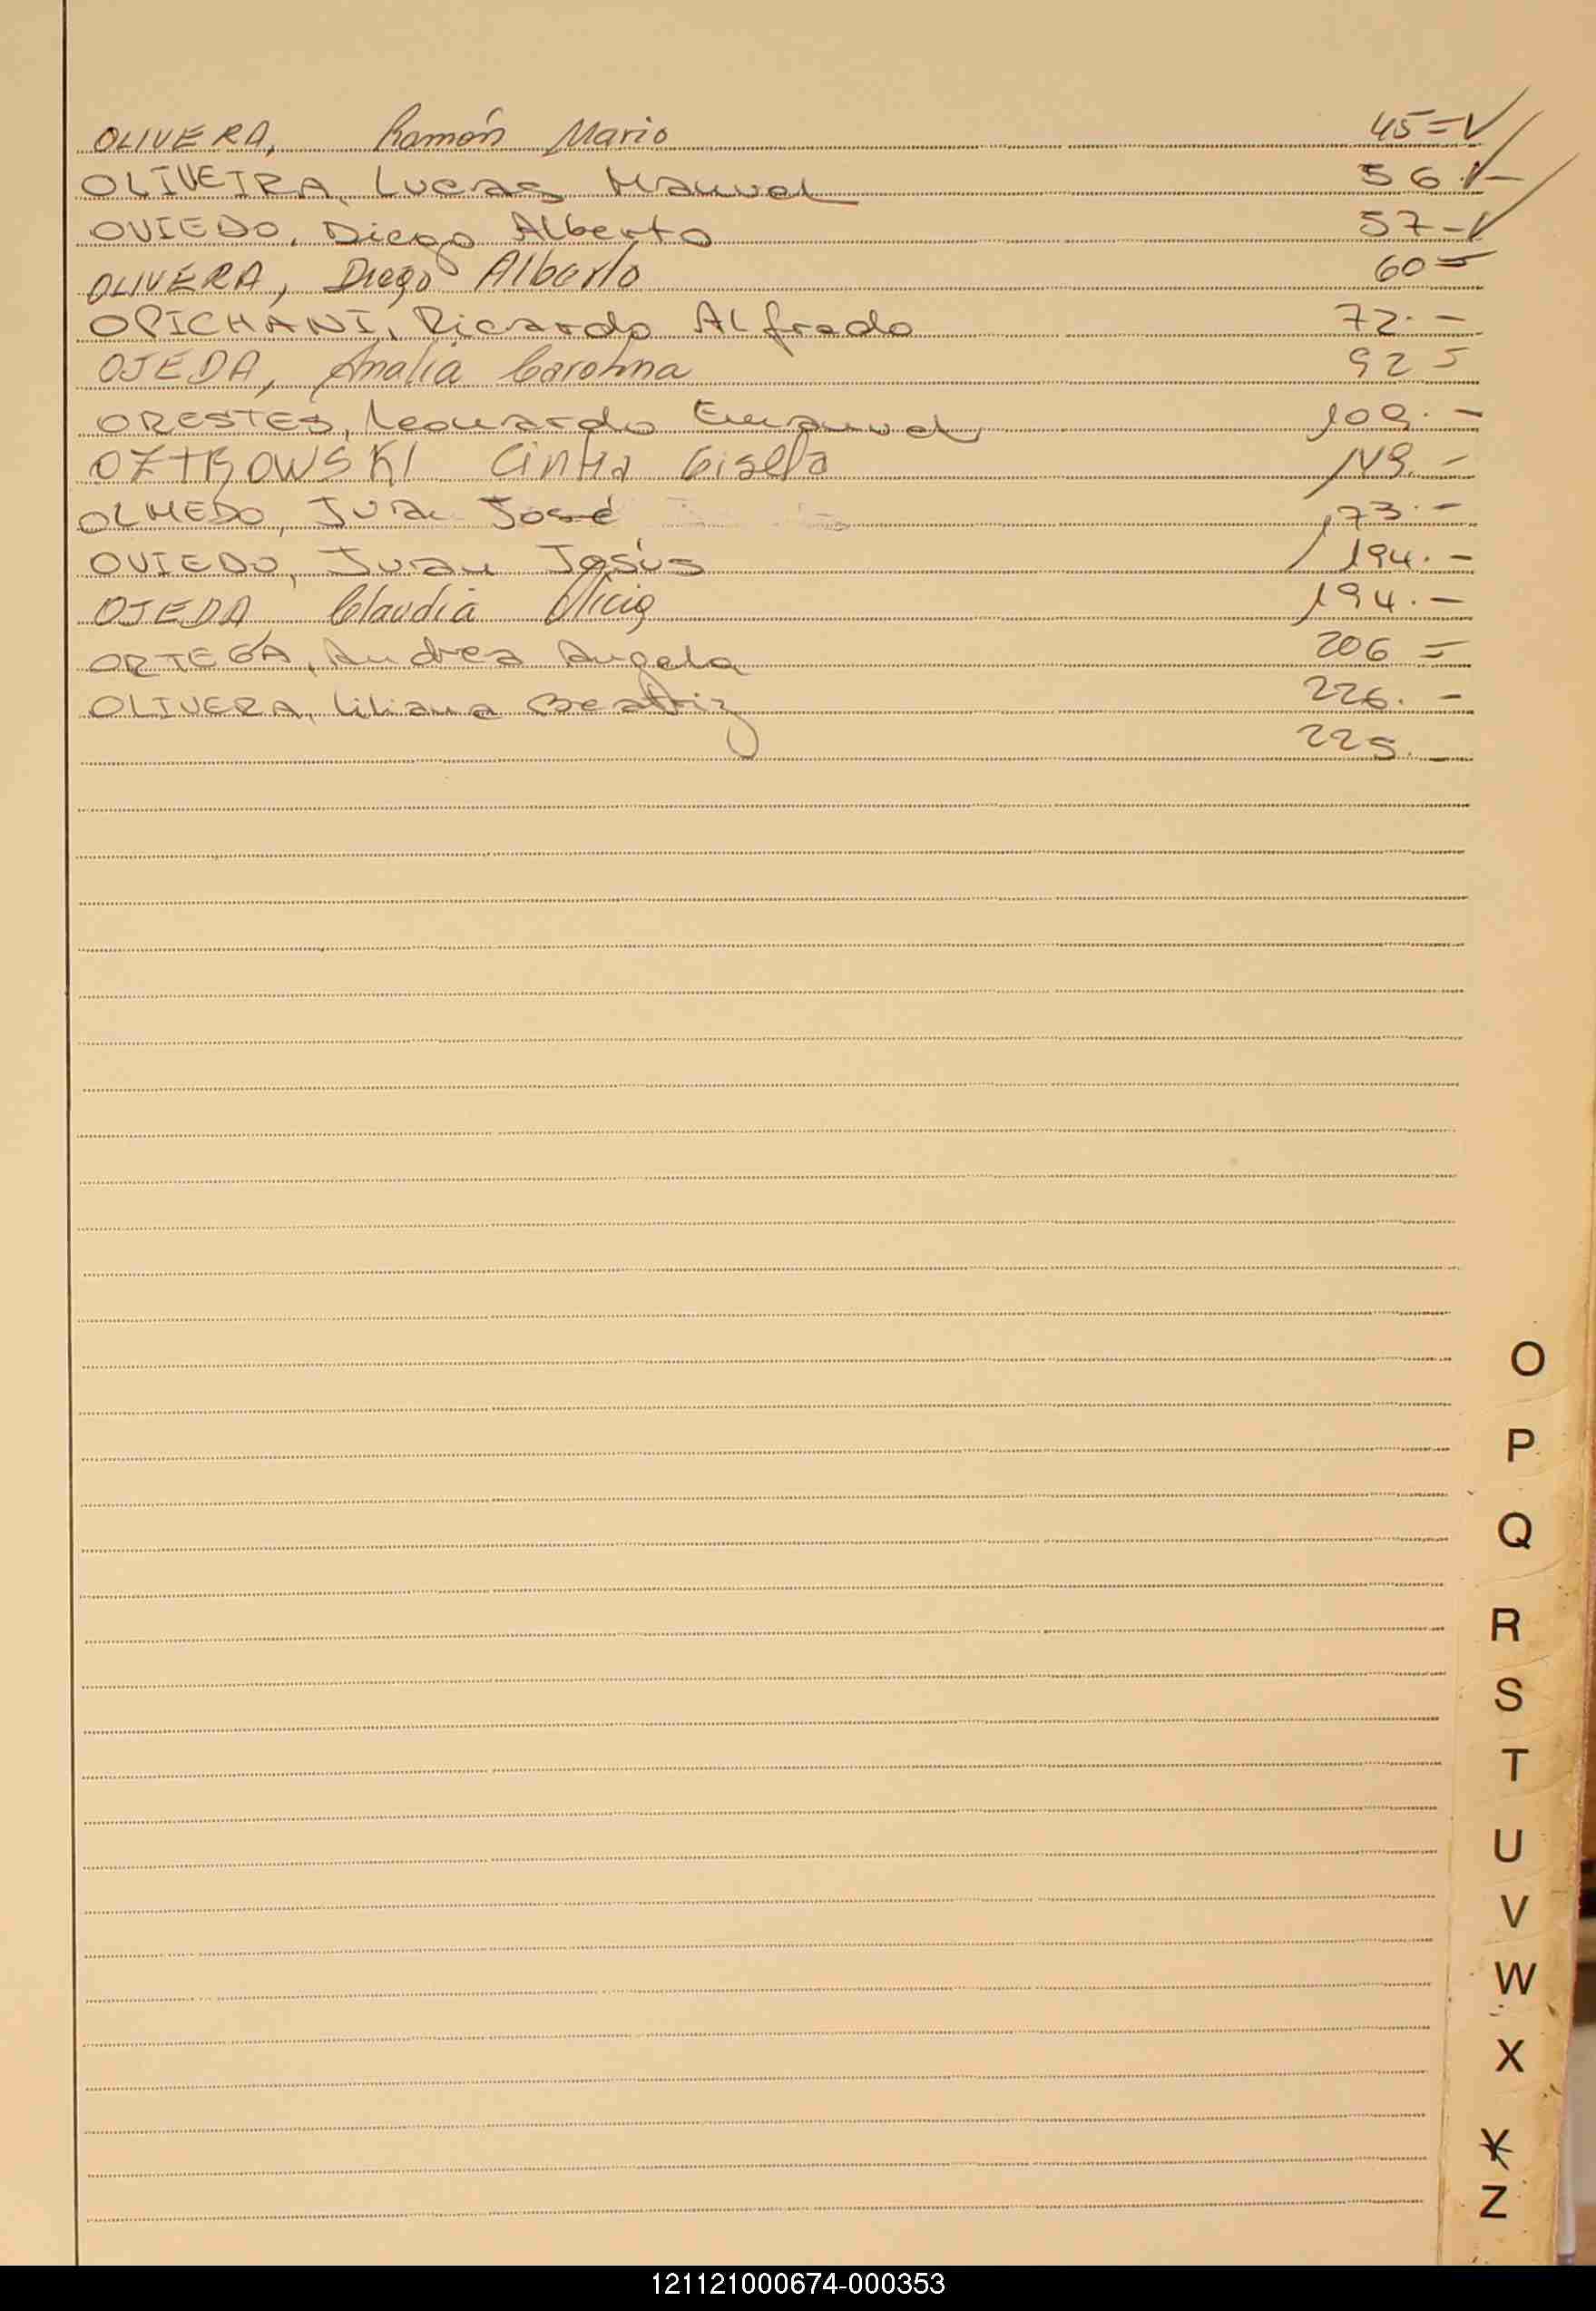 OLIVERA, Ramón Mario 45=V
OLIVEIRA, Lucas Manuel 56.V-
OVIEDO, Diego Alberto 57-V
OLIVERA, Diego Alberto 60=
OPICHANI, Ricardo Alfredo 72.-
OJEDA, Analia Carolina 92=
ORESTES, Leonardo Emanuel 109.-
OZTROWSKI Cintia Gisella 149.-
OLMEDO, Juan José 173.-
OVIEDO, Juan Jesús 194.-
OJEDA, Claudia Alicia 194.-
ORTEGA, Andrea Angela 206=
OLIVERA, Liliana Beatriz 226.-
225.-
O
P
Q
R
S
T
U
V
W
X
Y
Z
121121000674-000353